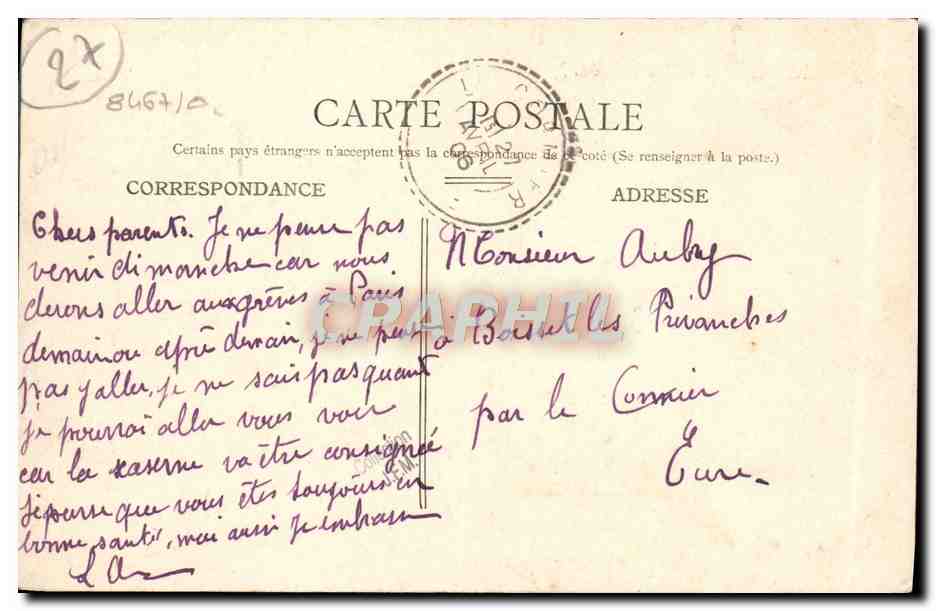 2x
8467/0
CARTE POSTALE
Certains pays étrangers n'acceptent pas la correspondance de ce coté (Se renseigner à la poste.)
CORRESPONDANCE
Chers parents. Je ne peux pas
venir dimanche car nous
devons aller aux grèves à Paris
demain ou aprè demain, je ne peut
pas y aller, je ne sais pas quant
je pourrai aller vous voir
car la caserne va être consignée
Je pense que vous êtes toujours en
bonne santé, moi aussi Je embrasse
ADRESSE
Monsieur Aubry
à Boisset les Prévanches
par le Cormier
Eure
21
06
CPAPHIL
Collection